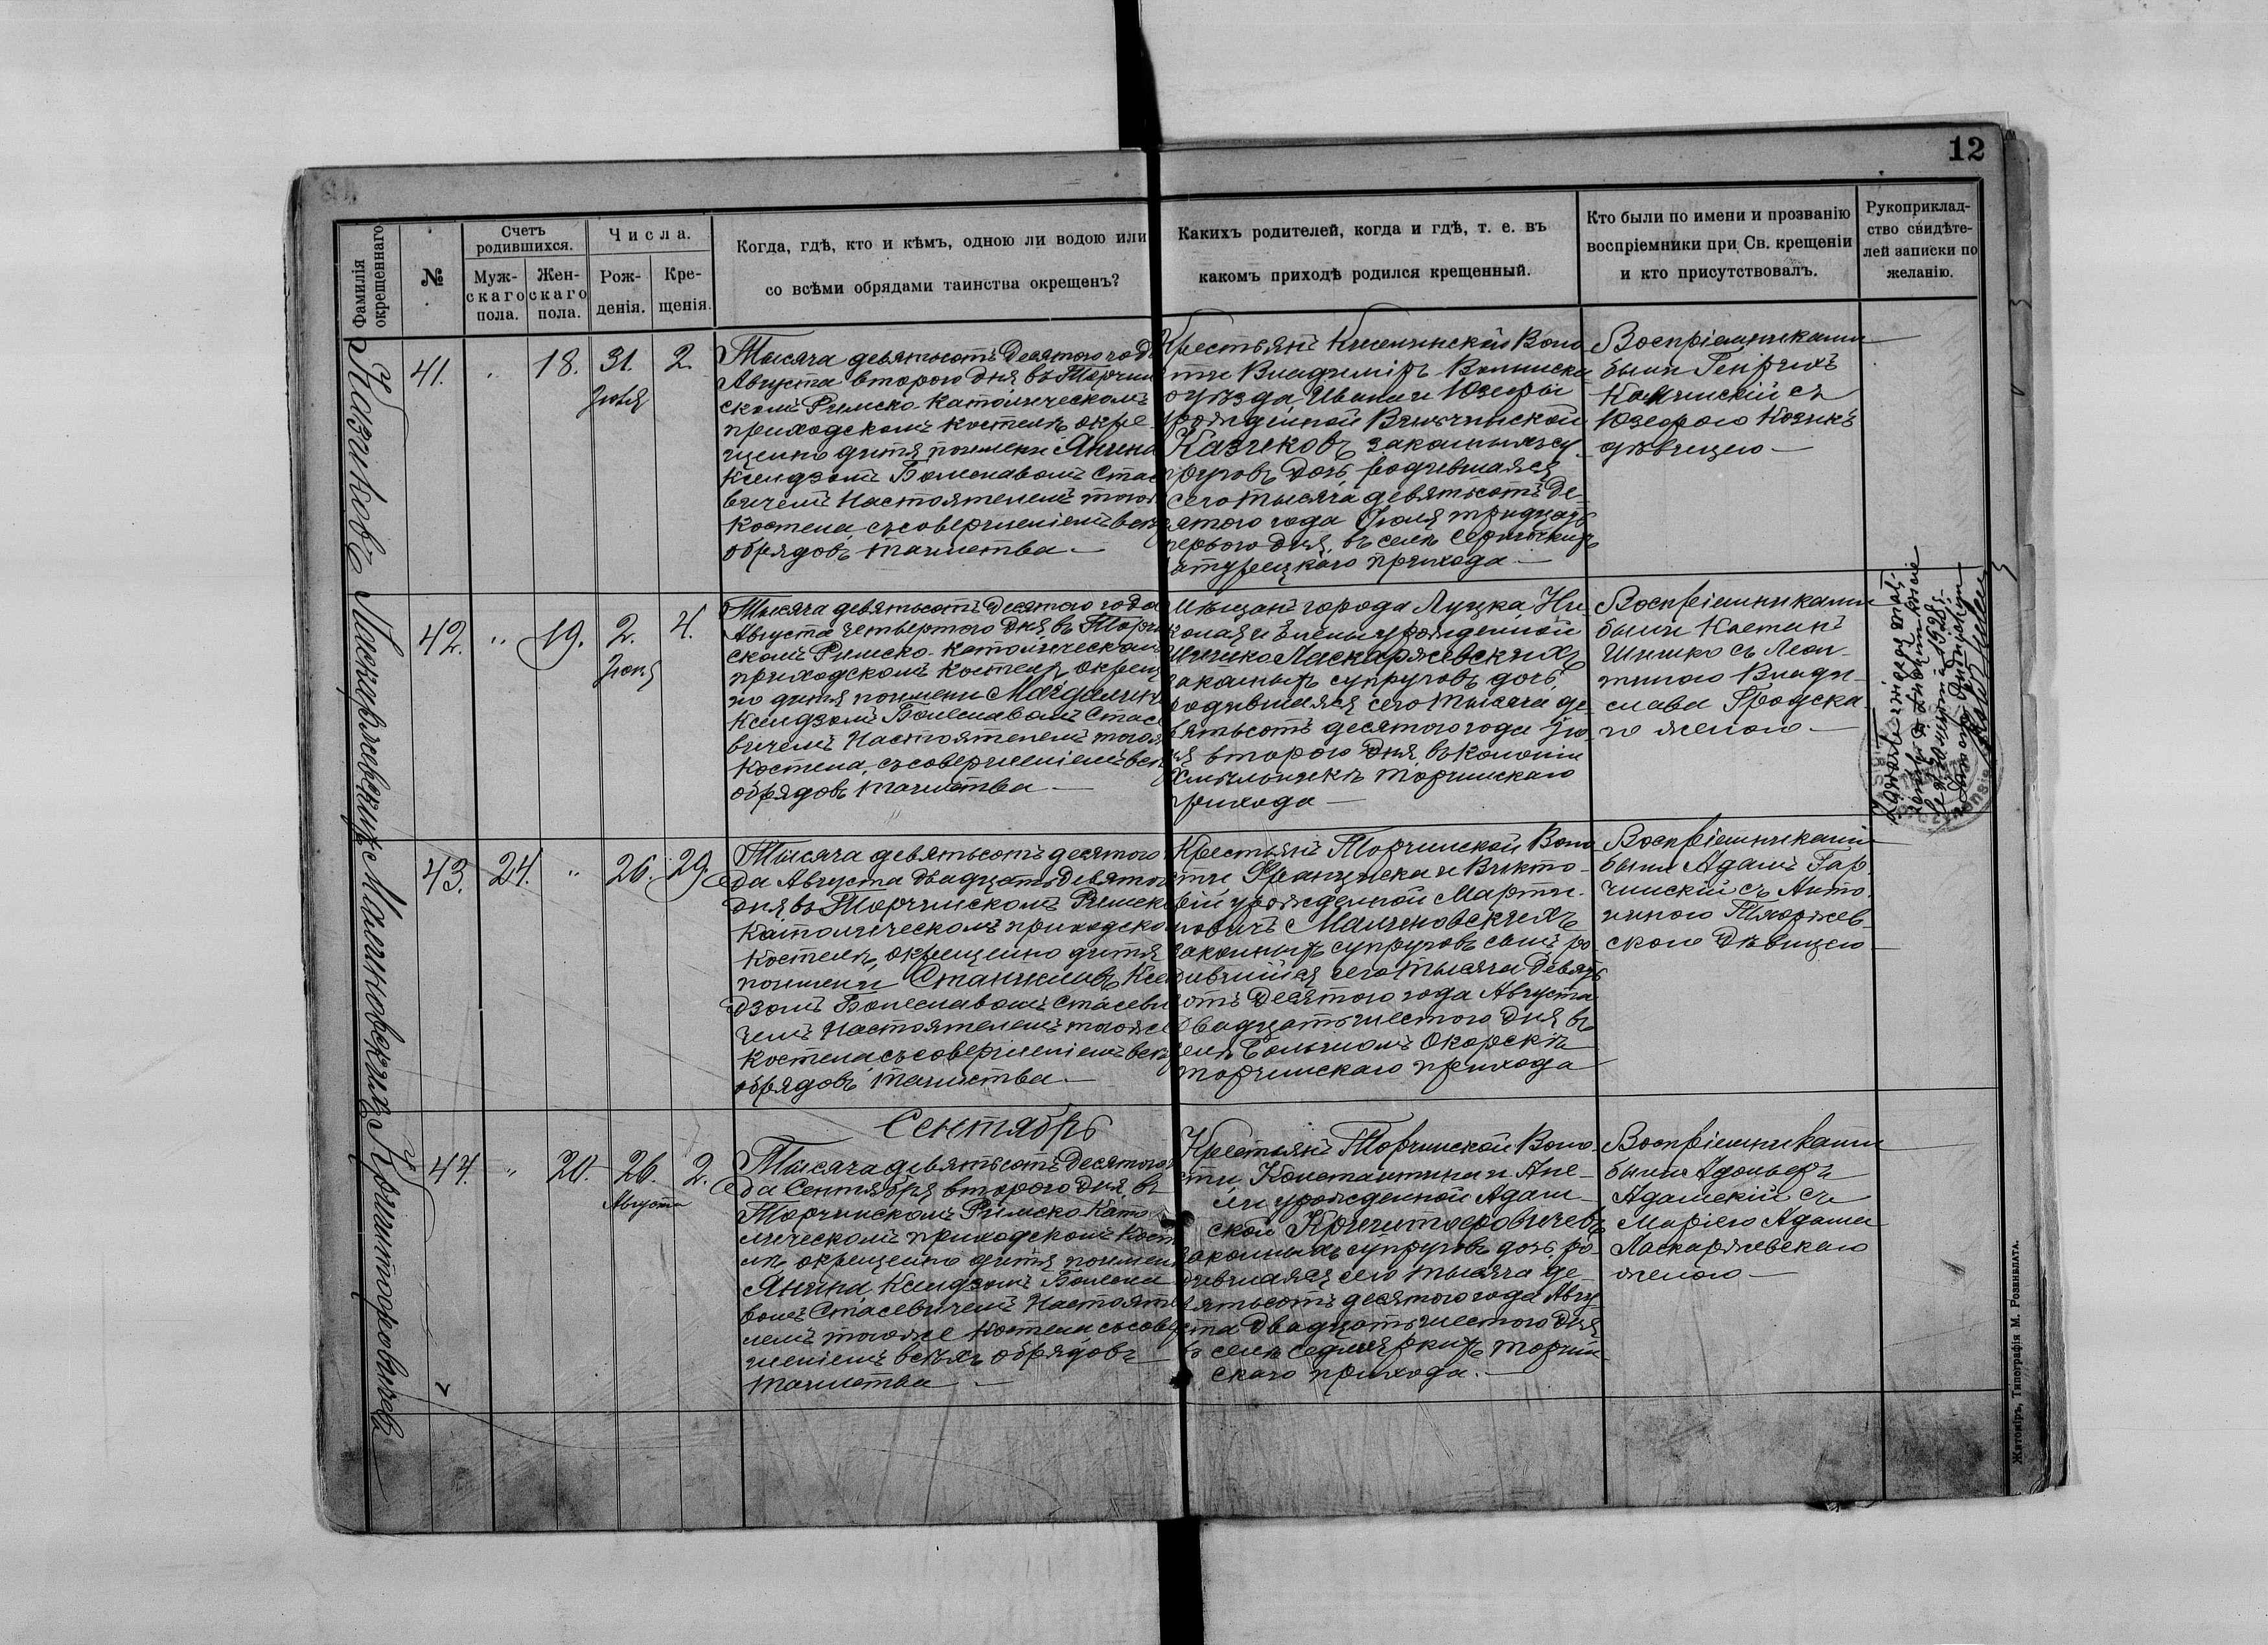 12
Фамилія окрещеннаго
№
Счетъ родившихся.
Мужскаго пола.
Женскаго пола.
Числа.
Рожденія.
Крещенія.
Когда, гдѣ, кто и кѣмъ, одною ли водою или
со всѣми обрядами таинства окрещенъ?
Какихъ родителей, когда и гдѣ, т. е. въ
какомъ приходѣ родился крещенный.
Кто были по имени и прозванію
воспріемники при Св. крещеніи
и кто присутствовалъ.
Рукоприклад-
ство свидѣте-
лей записки по
желанію.
Козиковъ
41. " 18. 31. 2.
Іюля
Тысяча девятьсотъ десятого год
Августа второго дня, въ Торчин
скомъ Римско-Католическомъ
приходскомъ костелѣ окре-
щено дитя по имени Янина
Ксендзомъ Болеславомъ Стас
вичемъ Настоятелемъ того
Костела, съ совершеніемъ всѣ
обрядовъ таинства.
Крестьянъ Киселинской Воло
сти Владиміръ-Волынска
о уѣзда, Ивана и Юзефы
урожденной
Казиковъ законныхъ су-
пруговъ дочь, родившаяся
сего тысяча девятьсотъ де-
сятого года Іюля тридцать
первого дня, въ селѣ
прихода
Воспріемниками
были Генрихъ
съ
Юзефою Козикъ
дѣвицею
42. " 19. 2. 4.
Іюня
Тысяча девятьсотъ десятого года
Августа четвертого дня, въ Торчи
скомъ Римско-Католическом
приходскомъ костелѣ, окрещ
но дитя по имени Магдалина
Ксендзомъ Болеславомъ Стас
вичемъ Настоятелемъ того
Костела, съ совершеніемъ всѣ
обрядовъ таинства
Мѣщанъ города Луцка, Ни-
колая и Елены урожденной
Шишко Ласкаржевскихъ
законныхъ супруговъ дочь,
родившаяся сего тысяча де-
вятьсотъ десятого года Ію-
ня второго дня, въ колоніи
Хмѣльникѣ Торчинскаго
прихода
Воспріемниками
были
Шишко съ Леон-
тиною Влади-
слава Гродска-
го женою.
43. 24. " 26. 29.
Тысяча девятьсотъ десятого
да Августа двадцать девятог
дня, въ Торчинскомъ Римск
Католическомъ приходско
костелѣ, окрещено дитя
по имени Станиславъ, Ксе
дзомъ Болеславомъ Стасеви
чемъ Настоятелемъ тогоже
Костела, съ совершеніемъ всѣ
обрядовъ таинства.
Крестьянъ Торчинской Воло
сти Францишка и Викто-
ріи урожденной Марти-
новичъ Малиновскихъ
законныхъ супруговъ сынъ, ро
дившійся сего тысяча девять
сотъ десятого года Августа
двадцать шестого дня въ
селѣ Большомъ Окорскѣ
торчинскаго прихода
Воспріемниками
были Адамъ Гар-
чинскій съ Анто-
ниною
скою дѣвицею
Малиновскихъ
Сентябрь
44. " 20. 26. 2.
Августа
Тысяча девятьсотъ десятого
да Сентября второго дня, въ
Торчинскомъ Римско-Като
лическомъ приходскомъ Кост
лѣ окрещено дитя по имени
Янина, Ксендзомъ Болесла
вомъ Стасевичемъ Настояте
лемъ тогоже Костела, съ совер
шеніемъ всѣхъ обрядовъ
таинства
Крестьянъ Торчинской Воло
сти Константина и Апе-
ліи урожденной Адам-
ской Криштофовичевъ
законныхъ супруговъ дочь, ро-
дившаяся сего тысяча де-
вятьсотъ десятого года Авгу-
ста двадцать шестого дня
въ селѣ Торчин
скаго прихода.
Воспріемниками
были Адольфъ
Адамскій съ
Маріею Адама
Ласкаржевскаго
женою
Житоміръ, Типографія М. Розенблата.